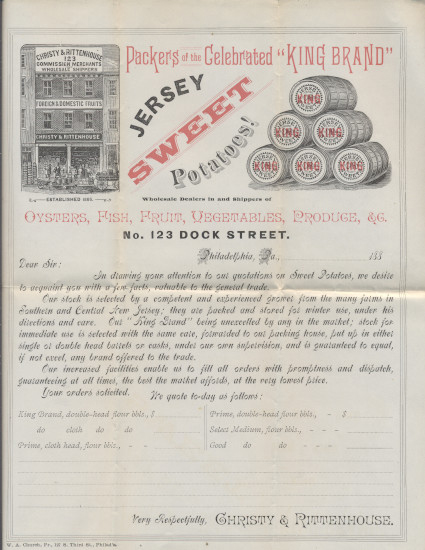 CHRISTY & RITTENHOUSE
123
COMMISSION MERCHANTS
WHOLESALE SHIPPERS
FOREIGN & DOMESTIC FRUITS
CHRISTY & RITTENHOUSE
Packers of the Celebrated "KING BRAND"
JERSEY
SWEET
Potatoes!
KING
KING KING
KING KING KING
Wholesale Dealers in and Shippers of
OYSTERS, FISH, FRUIT, VEGETABLES, PRODUCE, &C.
No. 123 DOCK STREET.
Philadelphia, Pa., 188
Dear Sir:
In drawing your attention to our quotations on Sweet Potatoes, we desire
to acquaint you with a few facts, valuable to the general trade.
Our stock is selected by a competent and experienced grower from the many farms in
Southern and Central New Jersey; they are packed and stored for winter use, under his
directions and care. Our "King Brand" being unexcelled by any in the market; stock for
immediate use is selected with the same care, forwarded to our packing house, put up in either
single or double head barrels or casks, under our own supervision, and is guaranteed to equal,
if not excel, any brand offered to the trade.
Our increased facilities enable us to fill all orders with promptness and dispatch,
guaranteeing at all times, the best the market affords, at the very lowest price.
Your orders solicited. We quote to-day as follows:
King Brand, double-head flour bbls., $
do cloth do do
Prime, cloth head, flour bbls., -
Prime, double-head flour bbls., - $
Select Medium, flour bbls., - - -
Good do do - - -
Very Respectfully, CHRISTY & RITTENHOUSE.
W. A. Church, Pr., 12 S. Third St., Philad'a.